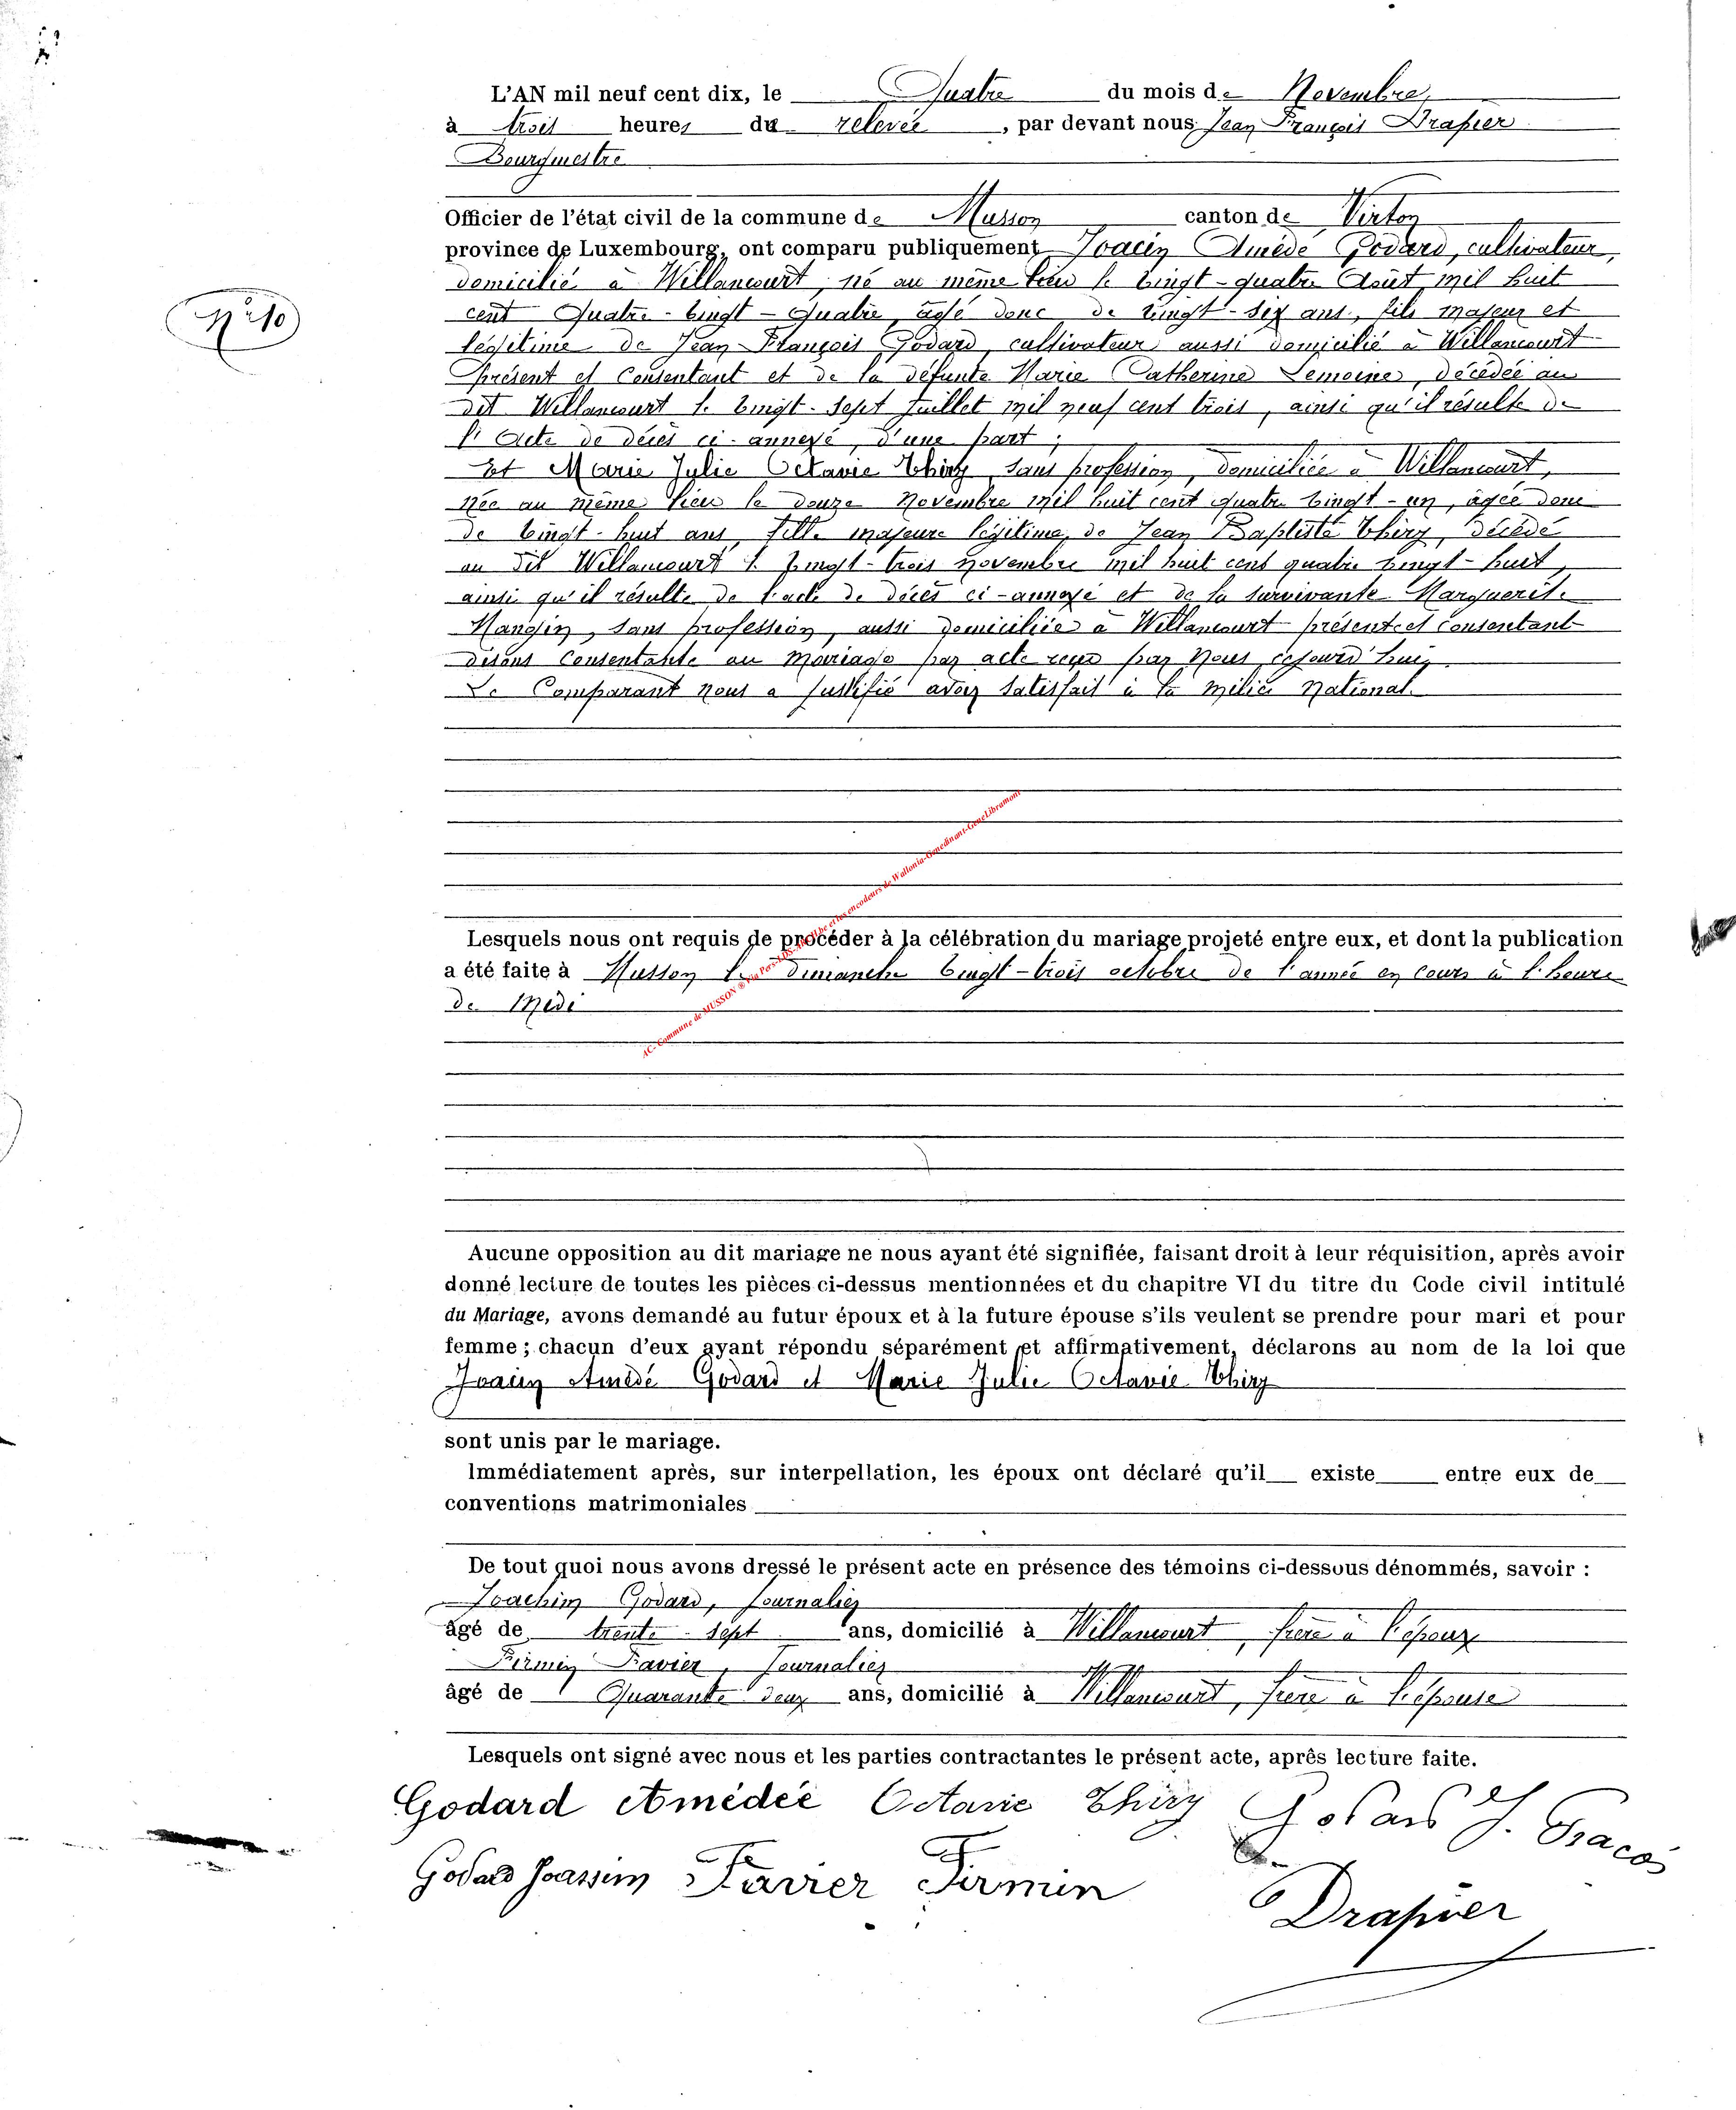 L'AN mil neuf cent dix, le Quatre du mois de Novembre,
à trois heures du relevée, par devant nous Jean François Drapier
Bourgmestre
Officier de l'état civil de la commune de Musson canton de Virton
province de Luxembourg, ont comparu publiquement Joacin Amédé Godard, cultivateur,
domicilié à Willancourt, né au même lieu le vingt-quatre Août mil huit
N° 10
cent Quatre-vingt-Quatre, âgé donc de vingt-six ans, fils majeur et
légitime de Jean-François Godard, cultivateur aussi domicilié à Willancourt
présent et consentant et de la défunte Marie Catherine Lemoine, décédée au
dit Willancourt le vingt-sept Juillet mil neuf cent trois, ainsi qu'il résulte de
l'Acte de décès ci-annexé, d'une part;
Et Marie Julie Octavie Thiry, sans profession, domiciliée à Willancourt,
née au même lieu le douze Novembre mil huit cent quatre vingt-un, âgée donc
de vingt-huit ans, fille majeure légitime de Jean Baptiste Thiry, décédé
au dit Willancourt le vingt-trois novembre mil huit cent quatre vingt-huit,
ainsi qu'il résulte de l'acte de décès ci-annexé et de la survivante Marguerite
Mangin, sans profession, aussi domiciliée à Willancourt présente et consentant
disons consentante au mariage par acte reçu par Nous cejourd'hui.
Le Comparant nous a justifié avoir satisfait à la milice national.
Lesquels nous ont requis de procéder à la célébration du mariage projeté entre eux, et dont la publication
a été faite à Musson le dimanche vingt-trois octobre de l'année en cours à l'heure
de Midi
AC- Commune de MUSSON ® Via Pers-LDS-Arch.be et les encodeurs de Wallonia-Genedinant-GeneLibramont
Aucune opposition au dit mariage ne nous ayant été signifiée, faisant droit à leur réquisition, après avoir
donné lecture de toutes les pièces ci-dessus mentionnées et du chapitre VI du titre du Code civil intitulé
du Mariage, avons demandé au futur époux et à la future épouse s'ils veulent se prendre pour mari et pour
femme ; chacun d'eux ayant répondu séparément et affirmativement, déclarons au nom de la loi que
Joacin Amédé Godard et Marie Julie Octavie Thiry
sont unis par le mariage.
Immédiatement après, sur interpellation, les époux ont déclaré qu'il existe entre eux de
conventions matrimoniales
De tout quoi nous avons dressé le présent acte en présence des témoins ci-dessous dénommés, savoir :
Joachim Godard, journalier
âgé de trente-sept ans, domicilié à Willancourt, frère à l'époux
Firmin Favier, Journalier
âgé de Quarante deux ans, domicilié à Willancourt, frère à l'épouse
Lesquels ont signé avec nous et les parties contractantes le présent acte, après lecture faite.
Godard Amédée Octavie Thiry Godard J.
Godard Joassim Favier Firmin
Drapier